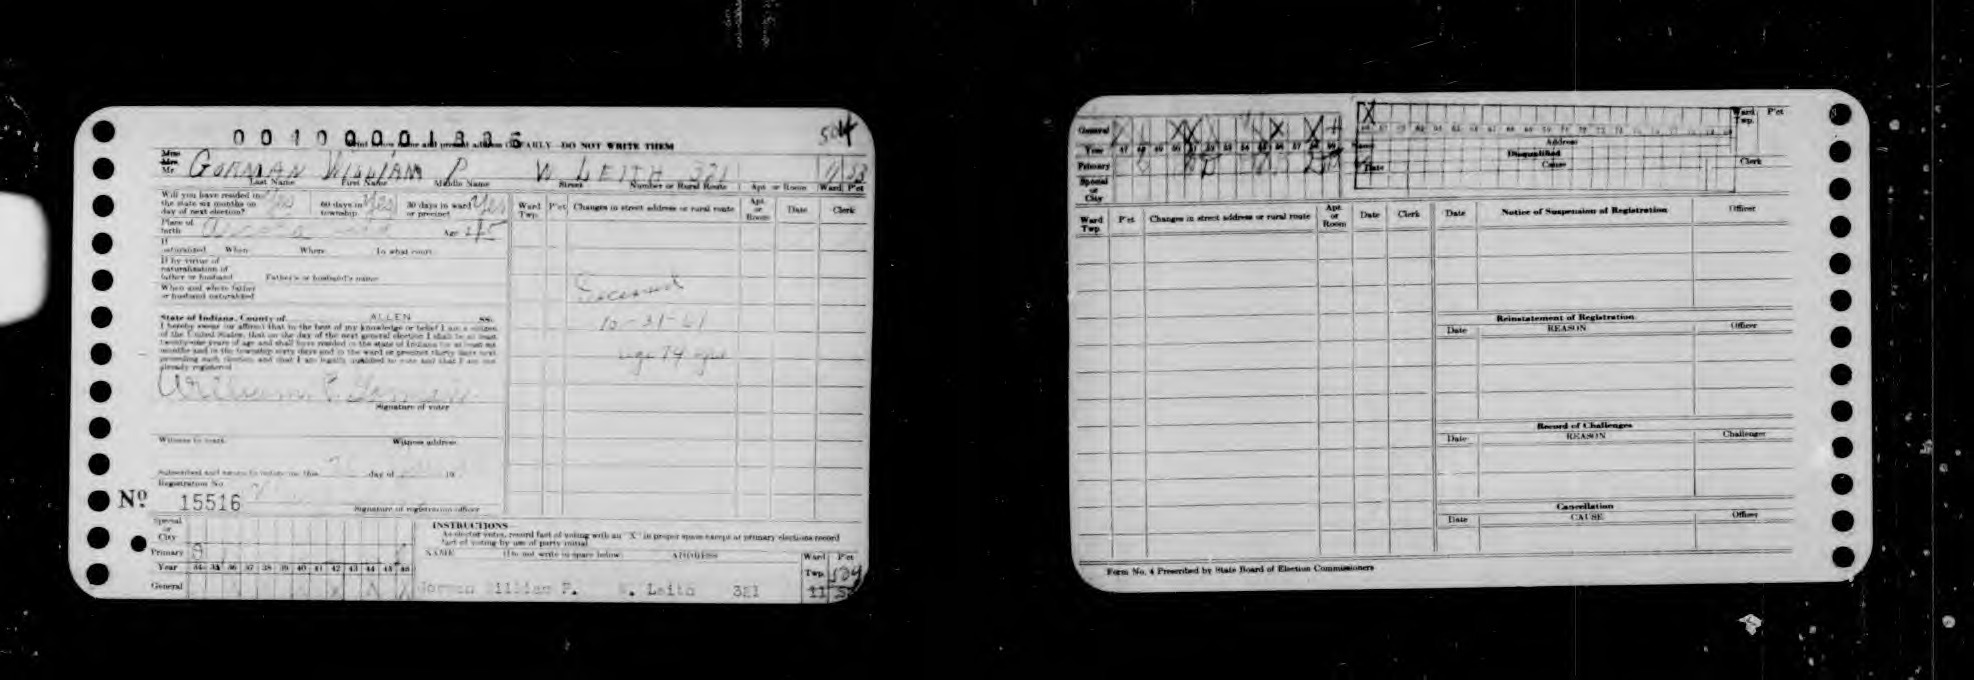 0 0 1 0 0 0 0 1 8 3 6
504
DO NOT WRITE THEM
Miss
Mrs.
Mr. GORMAN WILLIAM P. W LEITH 321
Last Name First Name Middle Name Street Number or Rural Route Apt. or Room Ward P'ct
Will you have resided in
the state six months on
day of next election? Yes 60 days in township Yes 30 days in ward or precinct Yes
Place of
birth Age 45
If
naturalized When Where In what court
If by virtue of
naturalization of
father or husband Father's or husband's name
When and where father
or husband naturalized
Ward Twp. P'ct Changes in street address or rural route Apt. or Room Date Clerk
Deceased
10-31-61
age 74 yrs
State of Indiana, County of ALLEN ss.
I hereby swear (or affirm) that to the best of my knowledge or belief I am a citizen
of the United States, that on the day of the next general election I shall be at least
twenty-one years of age and shall have resided in the state of Indiana for at least six
months and in the township sixty days and in the ward or precinct thirty days next
preceding such election, and that I am legally qualified to vote and that I am not
already registered
William P. Gorman
Signature of voter
Witness to mark Witness address
Subscribed and sworn to before me this day of 19
Registration No
Nº 15516
Signature of registration officer
Special
or
City
Primary
Year 34 35 36 37 38 39 40 41 42 43 44 45 46
General
INSTRUCTIONS
As elector votes, record fact of voting with an "X" in proper space except at primary elections record
fact of voting by use of party initial
NAME (Do not write in space below) ADDRESS Ward Twp. P'ct
Gorman William P. W. Leith 321 11 504
General
Year 47 48 49 50 51 52 53 54 55 56 57 58 59
Primary
Special
or
City
Ward Twp. P'ct
Address
Disqualified
Date Cause Clerk
Ward Twp. P'ct Changes in street address or rural route Apt. or Room Date Clerk
Date Notice of Suspension of Registration Officer
Reinstatement of Registration
Date REASON Officer
Record of Challenges
Date REASON Challenger
Cancellation
Date CAUSE Officer
Form No. 4 Prescribed by State Board of Election Commissioners